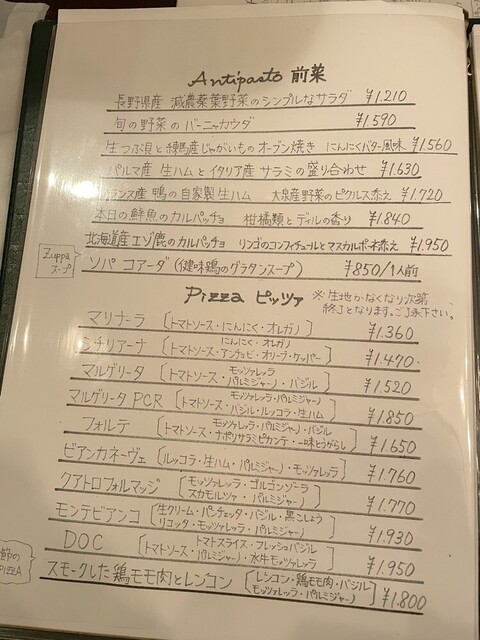 Antipasto 前菜
長野県産 減農薬葉野菜のシンプルなサラダ ¥1.210
旬の野菜の バーニャカウダ ¥1.590
生つぶ貝と練馬産じゃがいものオーブン焼き にんにくバター風味 ¥1.560
パルマ産 生ハムとイタリア産 サラミの盛り合わせ ¥1.630
フランス産 鴨の自家製生ハム 大泉産野菜のピクルス添え ¥1.720
本日の鮮魚のカルパッチョ 柑橘類とディルの香り ¥1.840
北海道産エゾ鹿のカルパッチョ リンゴのコンフィチュールとマスカルポーネ添え ¥1.950
Zuppa
スープ
ソパ コアーダ (健味鶏のグラタンスープ) ¥850/1人前
Pizza ピッツァ ※生地がなくなり次第
終了となります。ご了承下さい。
マリナーラ [トマトソース・にんにく・オレガノ] ¥1.360
シチリアーナ [にんにく・オレガノ
トマトソース・アンチョビ・オリーブ・ケッパー] ¥1.470
マルゲリータ [モッツァレラ
トマトソース・パルミジャーノ・バジル] ¥1.520
マルゲリータ PCR [モッツァレラ・パルミジャーノ
トマトソース・バジル・ルッコラ・生ハム] ¥1.850
フォルテ [モッツァレラ・パルミジャーノ・バジル
トマトソース・ナポリサラミピカンテ・一味とうがらし] ¥1.650
ビアンカネーヴェ [ルッコラ・生ハム・パルミジャーノ・モッツァレラ] ¥1.760
クアトロフォルマッジ [モッツァレラ・ゴルゴンゾーラ
スカモルツァ・パルミジャーノ] ¥1.770
モンテビアンコ [生クリーム・パンチェッタ・バジル・黒こしょう
リコッタ・モッツァレラ・パルミジャーノ] ¥1.930
DOC [トマトスライス・フレッシュバジル
トマトソース・パルミジャーノ・水牛モッツァレラ] ¥1.950
節の
PIZZA
スモークした鶏モモ肉とレンコン [レンコン・鶏モモ肉・バジル
モッツァレラ・パルミジャーノ] ¥1.800